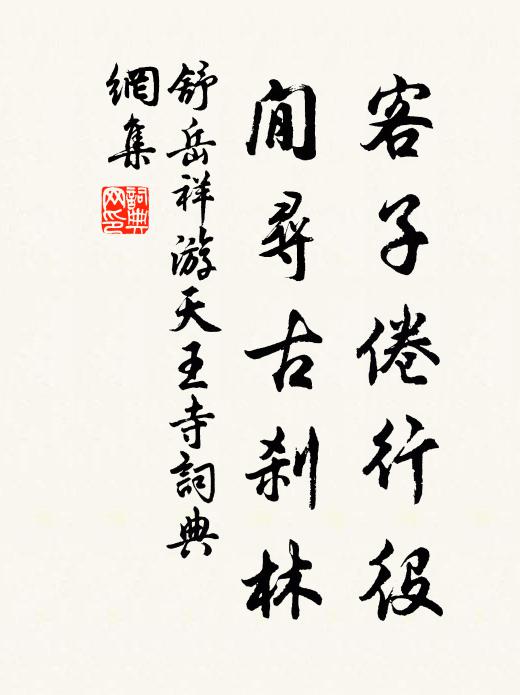 客子倦行役
閒尋古刹林
舒岳祥游天王寺詞典
網集
詞典網印